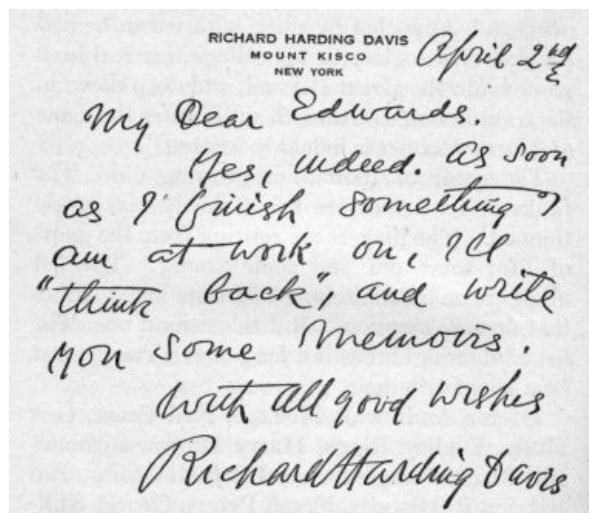 RICHARD HARDING DAVIS
MOUNT KISCO
NEW YORK
April 2nd
My Dear Edwards
Yes, indeed. as soon
as I finish something I
am at work on, I'll
"think back" and write
you some memoirs
With all good wishes
Richard Harding Davis